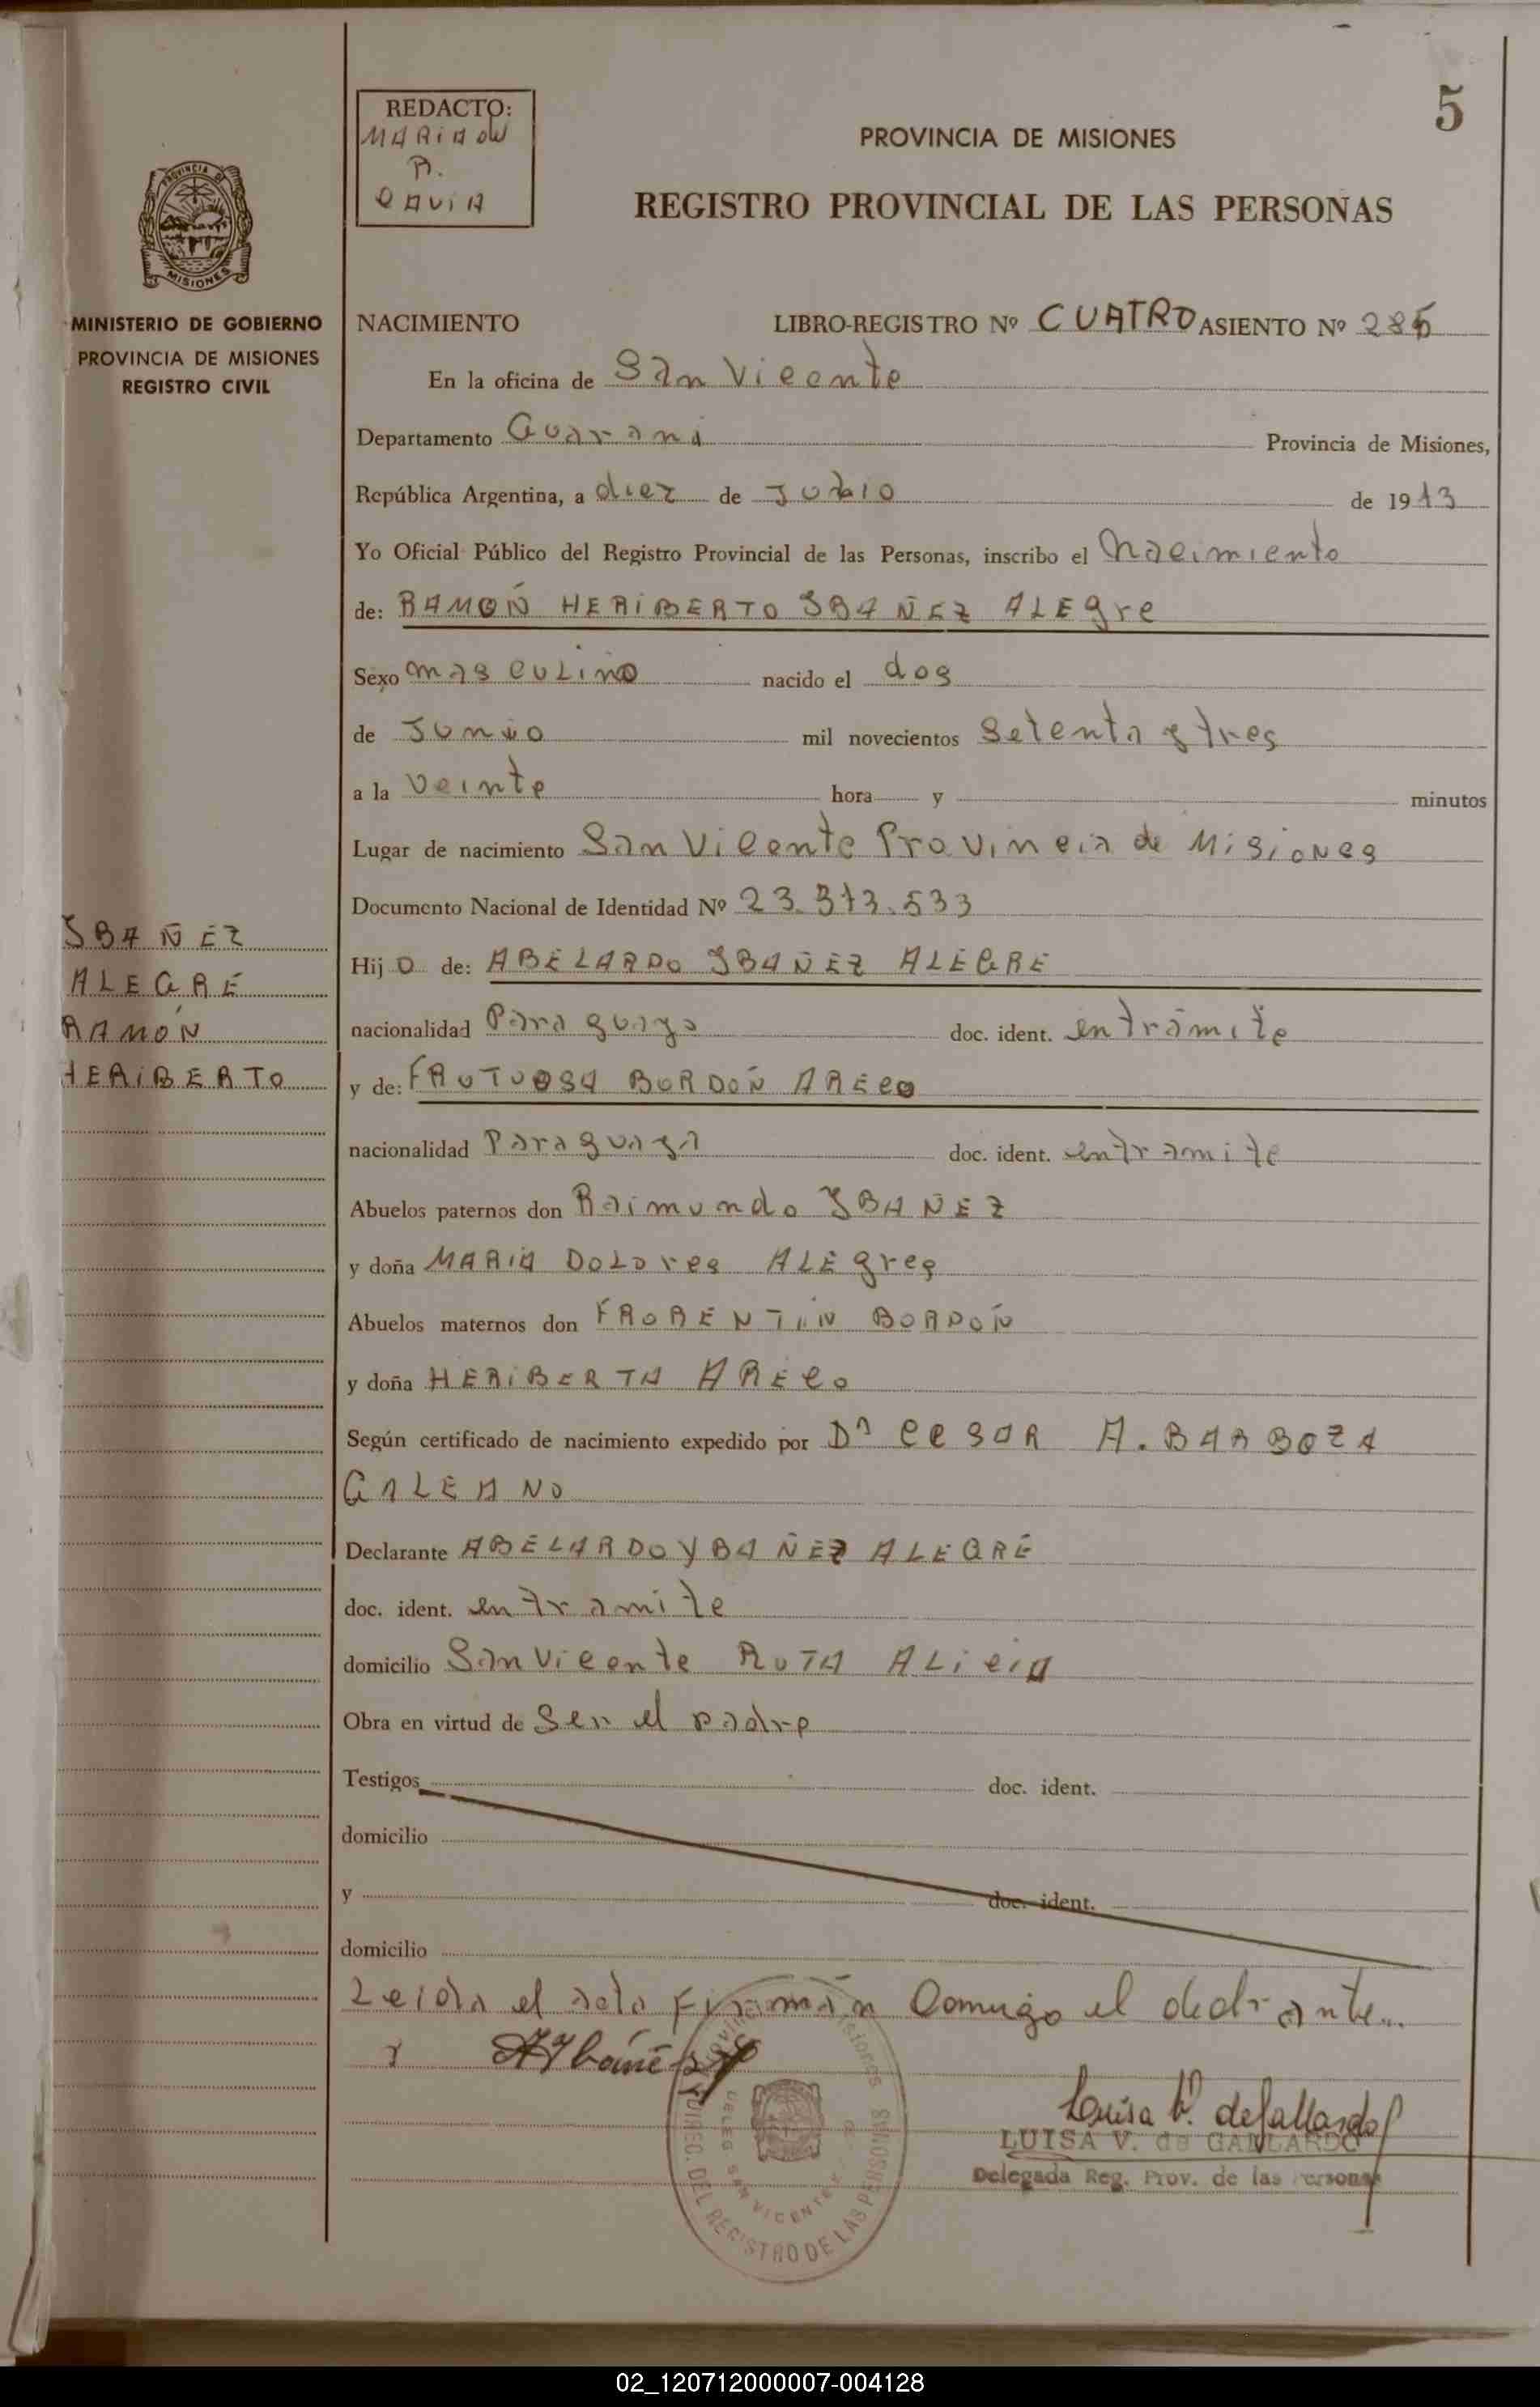 5
REDACTO:
MARIA
R.
DAVIA
PROVINCIA DE MISIONES
REGISTRO PROVINCIAL DE LAS PERSONAS
PROVINCIA D MISIONES
MINISTERIO DE GOBIERNO
PROVINCIA DE MISIONES
REGISTRO CIVIL
NACIMIENTO LIBRO-REGISTRO Nº CUATRO ASIENTO Nº 285
En la oficina de San Vicente
Departamento Guarani Provincia de Misiones,
República Argentina, a diez de Julio de 1973
Yo Oficial Público del Registro Provincial de las Personas, inscribo el Nacimiento
de: RAMÓN HERIBERTO YBAÑEZ ALEgre
Sexo masculino nacido el dos
de Junio mil novecientos Setenta y tres
a la veinte hora y minutos
Lugar de nacimiento San Vicente Provincia de Misiones
Documento Nacional de Identidad Nº 23.373.533
Hij o de: ABELARDO YBAÑEZ ALEGRE
nacionalidad Paraguayo doc. ident. en trámite
y de: FRUTUOSA BORDÓN ARECO
nacionalidad Paraguaya doc. ident. en tramite
Abuelos paternos don Raimundo YBAÑEZ
y doña MARIA DOLores ALEgres
Abuelos maternos don FRORENTIIN BORDÓN
y doña HERIBERTA ARECO
Según certificado de nacimiento expedido por Dr CESAR A. BARBOZA
GALEANO
Declarante ABELARDO YBAÑEZ ALEGRE
doc. ident. en tramite
domicilio San Vicente RUTA ALicia
Obra en virtud de Ser el padre
Testigos doc. ident.
domicilio
y doc. ident.
domicilio
Leida el acta Firman Comigo el declarante...
AYbañez
Luisa V. de Gallardo
LUISA V. de GALLARDO
Delegada Reg. Prov. de las Personas
DIREC. DEL REGISTRO DE LAS PERSONAS
DELEG SAN VICENTE
YBAÑEZ
ALEGRE
RAMÓN
HERIBERTO
02_120712000007-004128